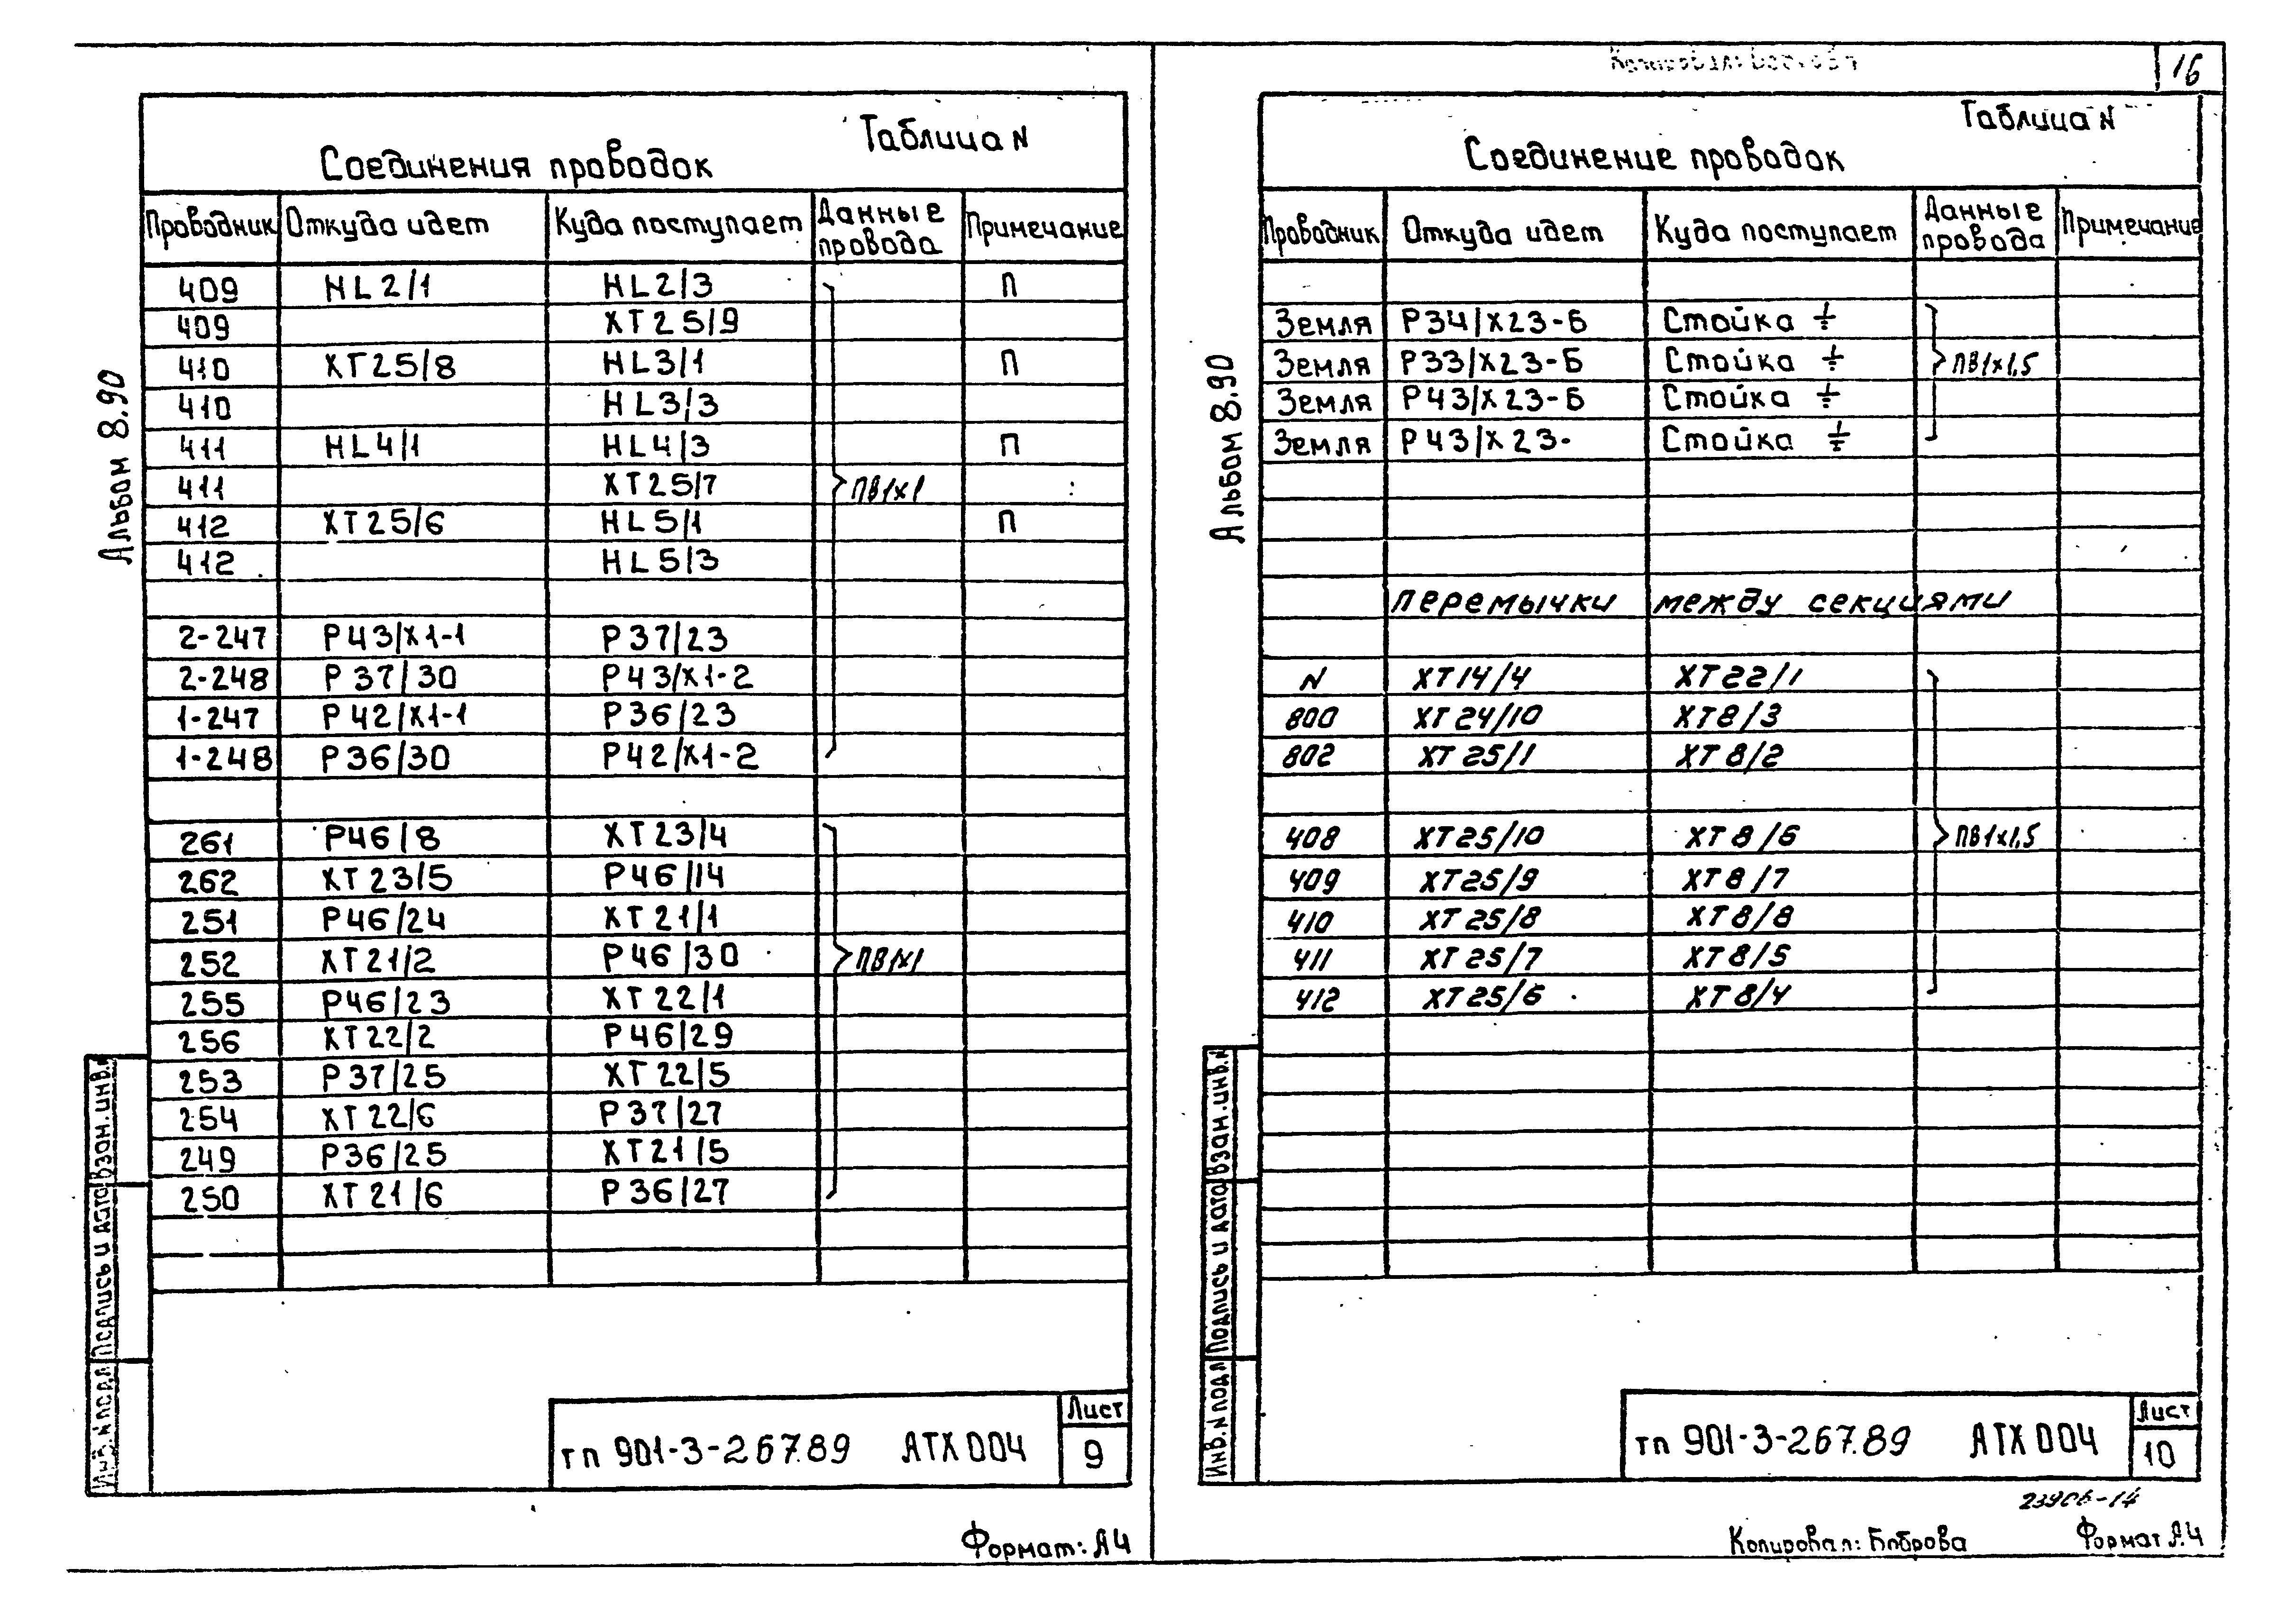 16
Таблица N
Соединения проводок
Проводник Откуда идет Куда поступает Данные провода Примечание
409 HL2/1 HL2/3 П
409 XT25/9
410 XT25/8 HL3/1 П
410 HL3/3
411 HL4/1 HL4/3 П
411 XT25/7 ПВ1х1
412 XT25/6 HL5/1 П
412 HL5/3
2-247 P43/X1-1 P37/23
2-248 P37/30 P43/X1-2
1-247 P42/X1-1 P36/23
1-248 P36/30 P42/X1-2
261 P46/8 XT23/4
262 XT23/5 P46/14
251 P46/24 XT21/1
252 XT21/2 P46/30 ПВ1х1
255 P46/23 XT22/1
256 XT22/2 P46/29
253 P37/25 XT22/5
254 XT22/6 P37/27
249 P36/25 XT21/5
250 XT21/6 P36/27
Альбом 8.90
Взам. инв. N
Подпись и дата
Инв. N подл
тп 901-3-267.89 АТХ 004
Лист
9
Формат: А4
Таблица N
Соединение проводок
Проводник Откуда идет Куда поступает Данные провода Примечание
Земля P34/X23-Б Стойка ⏚
Земля P33/X23-Б Стойка ⏚ ПВ1х1,5
Земля P43/X23-Б Стойка ⏚
Земля P43/X23- Стойка ⏚
перемычки между секциями
N XT14/4 XT22/1
800 XT24/10 XT8/3
802 XT25/1 XT8/2
408 XT25/10 XT8/6 ПВ1х1,5
409 XT25/9 XT8/7
410 XT25/8 XT8/8
411 XT25/7 XT8/5
412 XT25/6 XT8/4
Альбом 8.90
Взам. инв. N
Подпись и дата
Инв. N подл
тп 901-3-267.89 АТХ 004
Лист
10
23906-14
Копировал: Боброва Формат А4